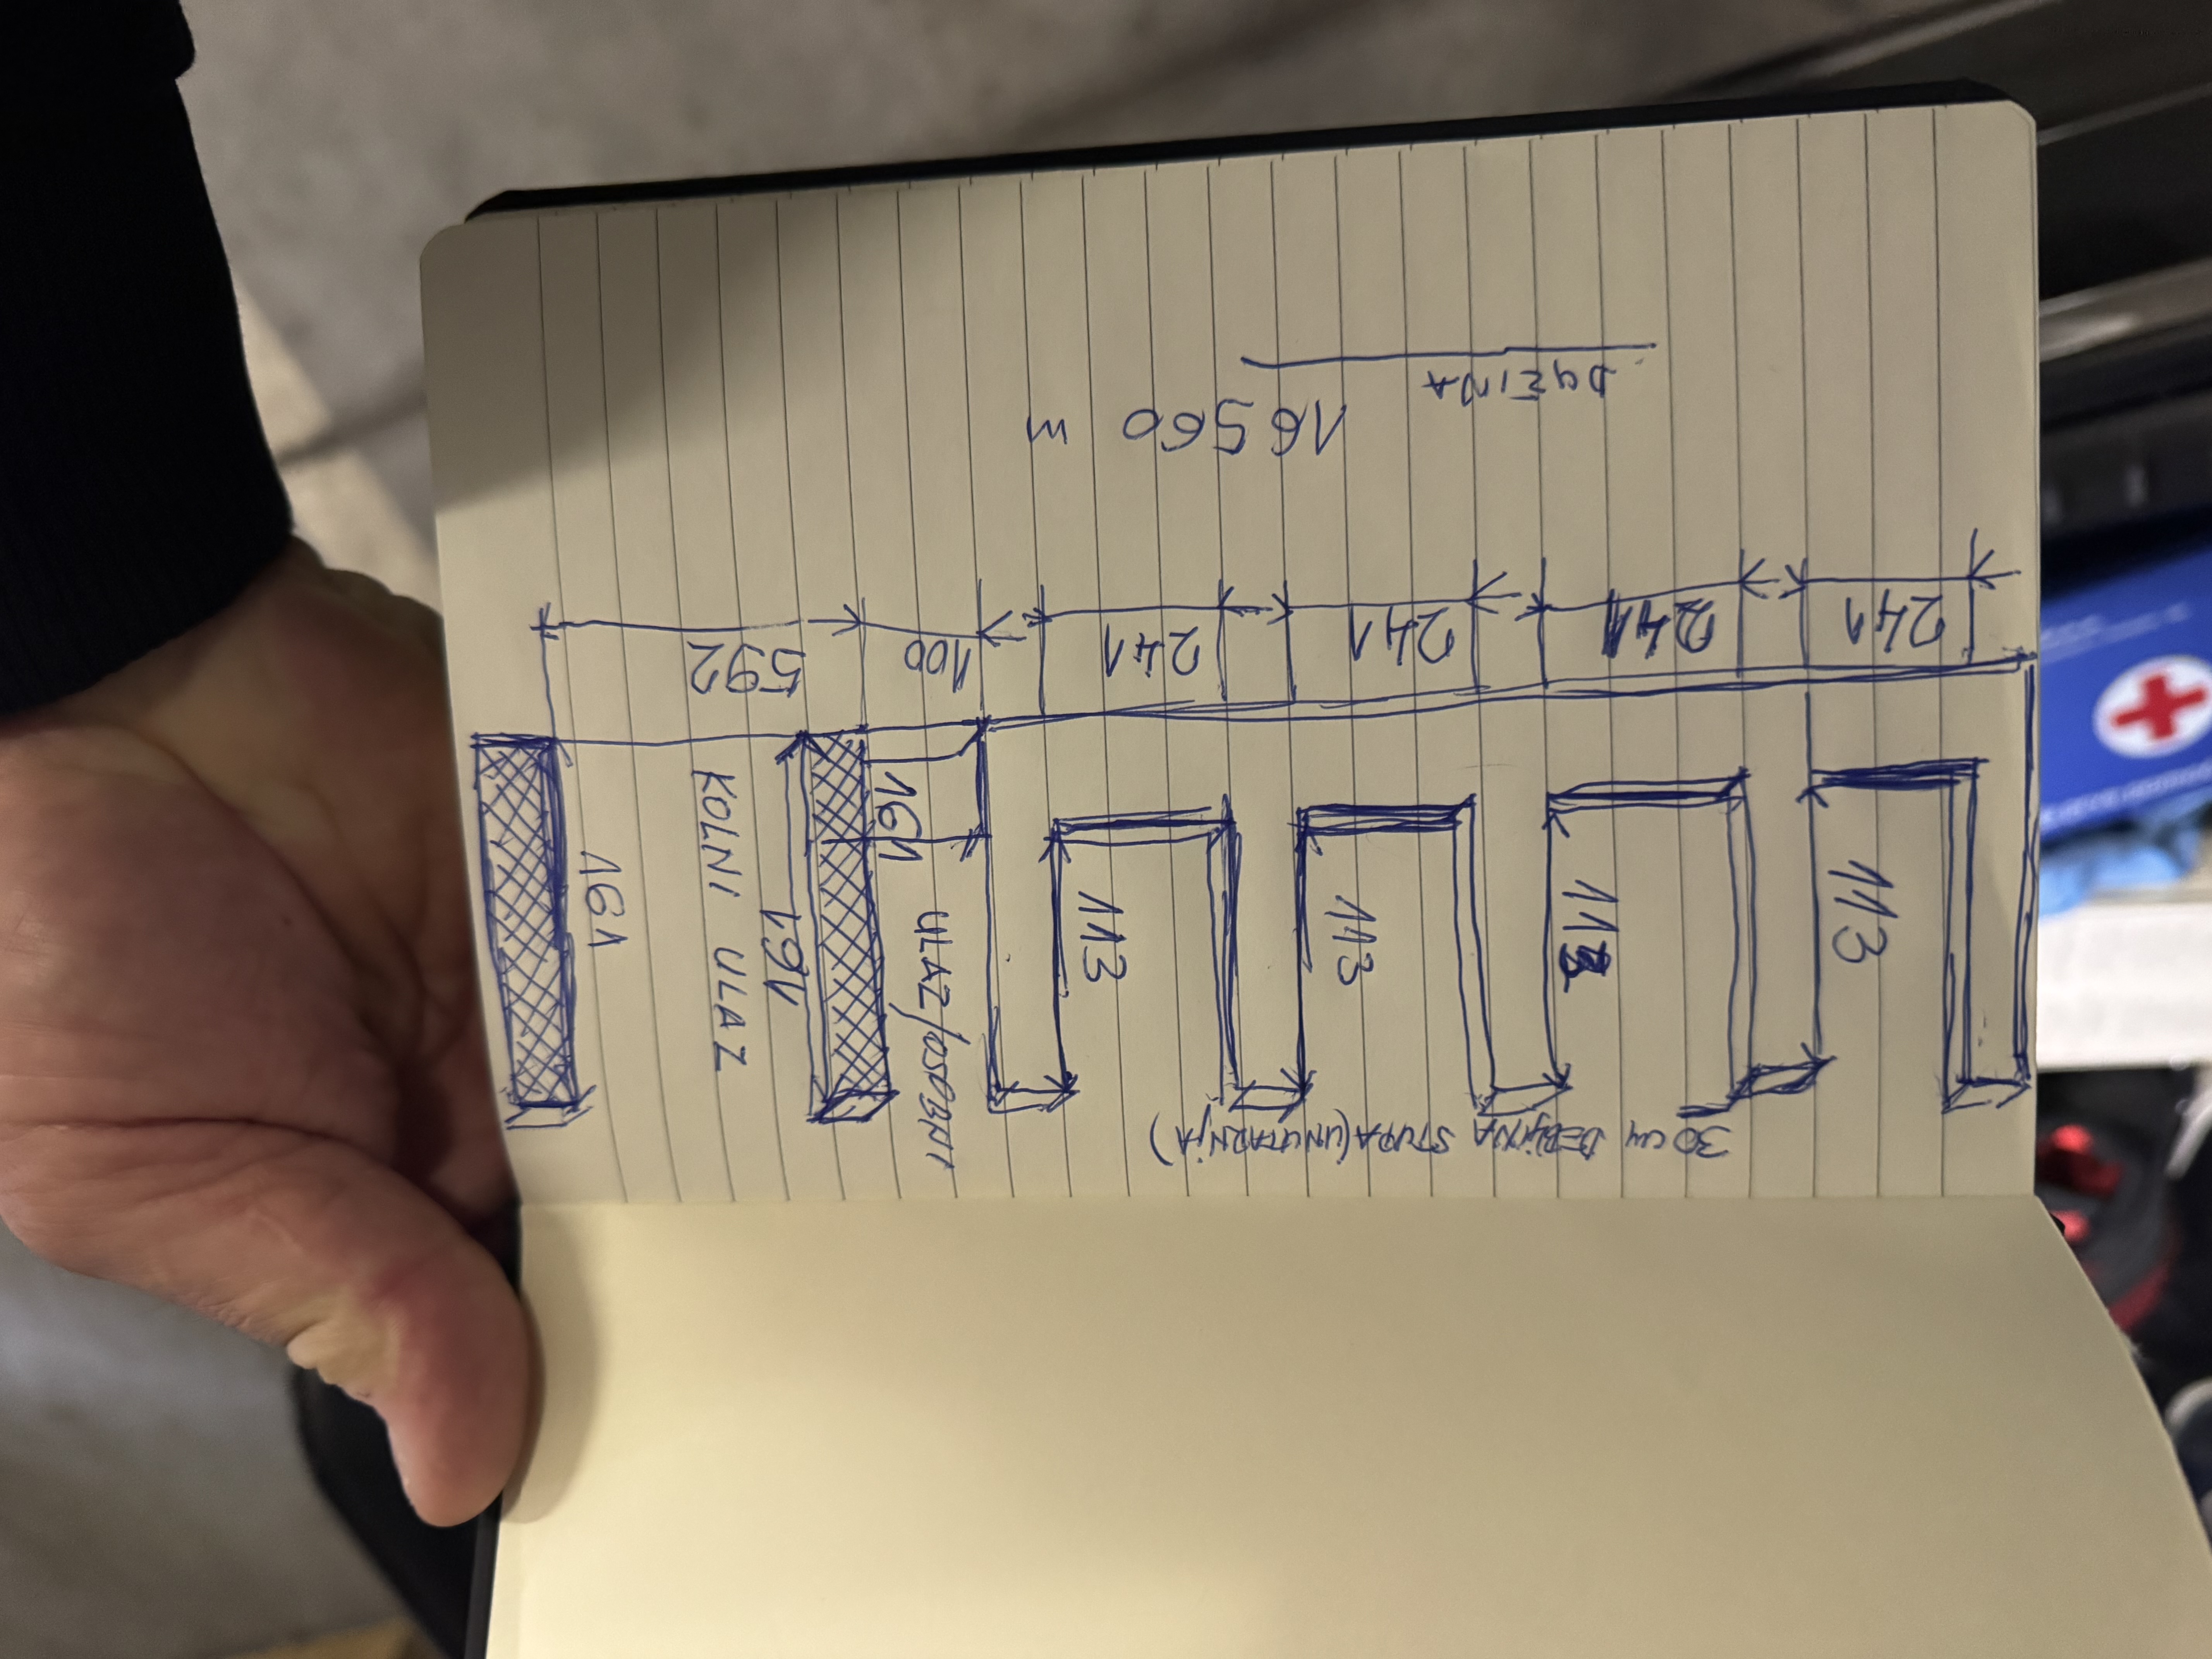 30 cm DEBLJINA STUPA (UNUTARNJA)
113
113
113
113
ULAZ/OSOBNI
161
161
KOLNI ULAZ
161
241
241
241
241
100
592
DUŽINA 16 560 m